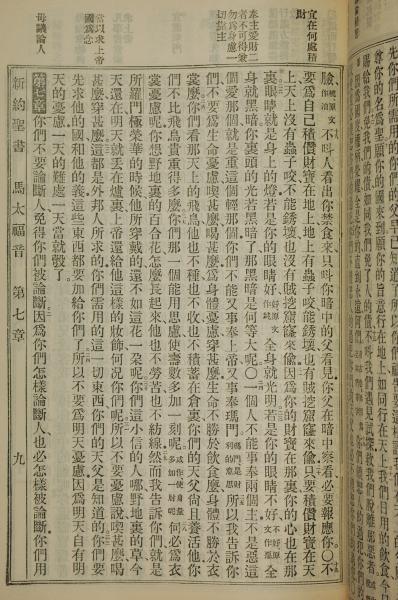 先你們所需用的你們的父早已知道了所以你們
尊你的名爲聖願你的國來到願你的旨意行在地上如同行在天上我們日用的飲食今日
賜給我們免我們的債如同我們免了人的債不叫我們遇見試探救我們脫離那惡者
宜在何處積財
奉主愛財二者不可得兼
勿爲身慮一切靠主
當以求上帝國爲念
毋議論人
臉原文作梳洗不叫人看出你禁食來只叫你暗中的父看見你父在暗中察看必要報應你○不
要爲自己積儹財寶在地上地上有蟲子咬能銹壞也有賊挖窟窿來偷只要積儹財寶在天
上天上沒有蟲子咬不能銹壞也沒有賊挖窟窿來偷因爲你的財寶在那裏你的心也在那
裏眼睛就是身上的燈若是你的眼睛好好原文作純全身就光明若是你的眼睛不好不好原文作惡全
身就黑暗你裏頭的光若黑暗了那黑暗是何等大呢○一個人不能事奉兩個主不是惡這
個愛那個就是重這個輕那個你們不能又事奉上帝又事奉瑪門瑪門是財利的意思所以我告訴你
們不要爲生命憂慮喫甚麽喝甚麽爲身體憂慮穿甚麽生命不勝於飲食麽身體不勝於衣
裳麽你們看那天上的飛鳥他也不種也不收也不積蓄在倉裏你們的天父尚且養活他你
們不比飛鳥貴重得多麽你們那一個能用思慮使壽數多加一刻呢或作使身量多加一肘呢何必爲衣
裳憂慮呢你想野地裏的百合花怎麽長起來他也不勞苦也不紡線然而我告訴你們就是
所羅門極榮華的時候他所穿戴的還不如這花一朶呢你們這小信的人哪野地裏的草今
天還在明天就丟在爐裏上帝還給他這樣的妝飾何況你們呢所以不要憂慮說喫甚麽喝
甚麽穿甚麽這都是外邦人所求的你們需用的這一切東西你們的天父是知道的你們要
先求他的國和他的義這些東西都要加給你們了所以不要爲明天憂慮因爲明天自有明
天的憂慮一天的難處一天當就彀了
第七章 你們不要論斷人免得你們被論斷因爲你們怎樣論斷人也必怎樣被論斷你們用
新約聖書 馬太福音 第七章 九